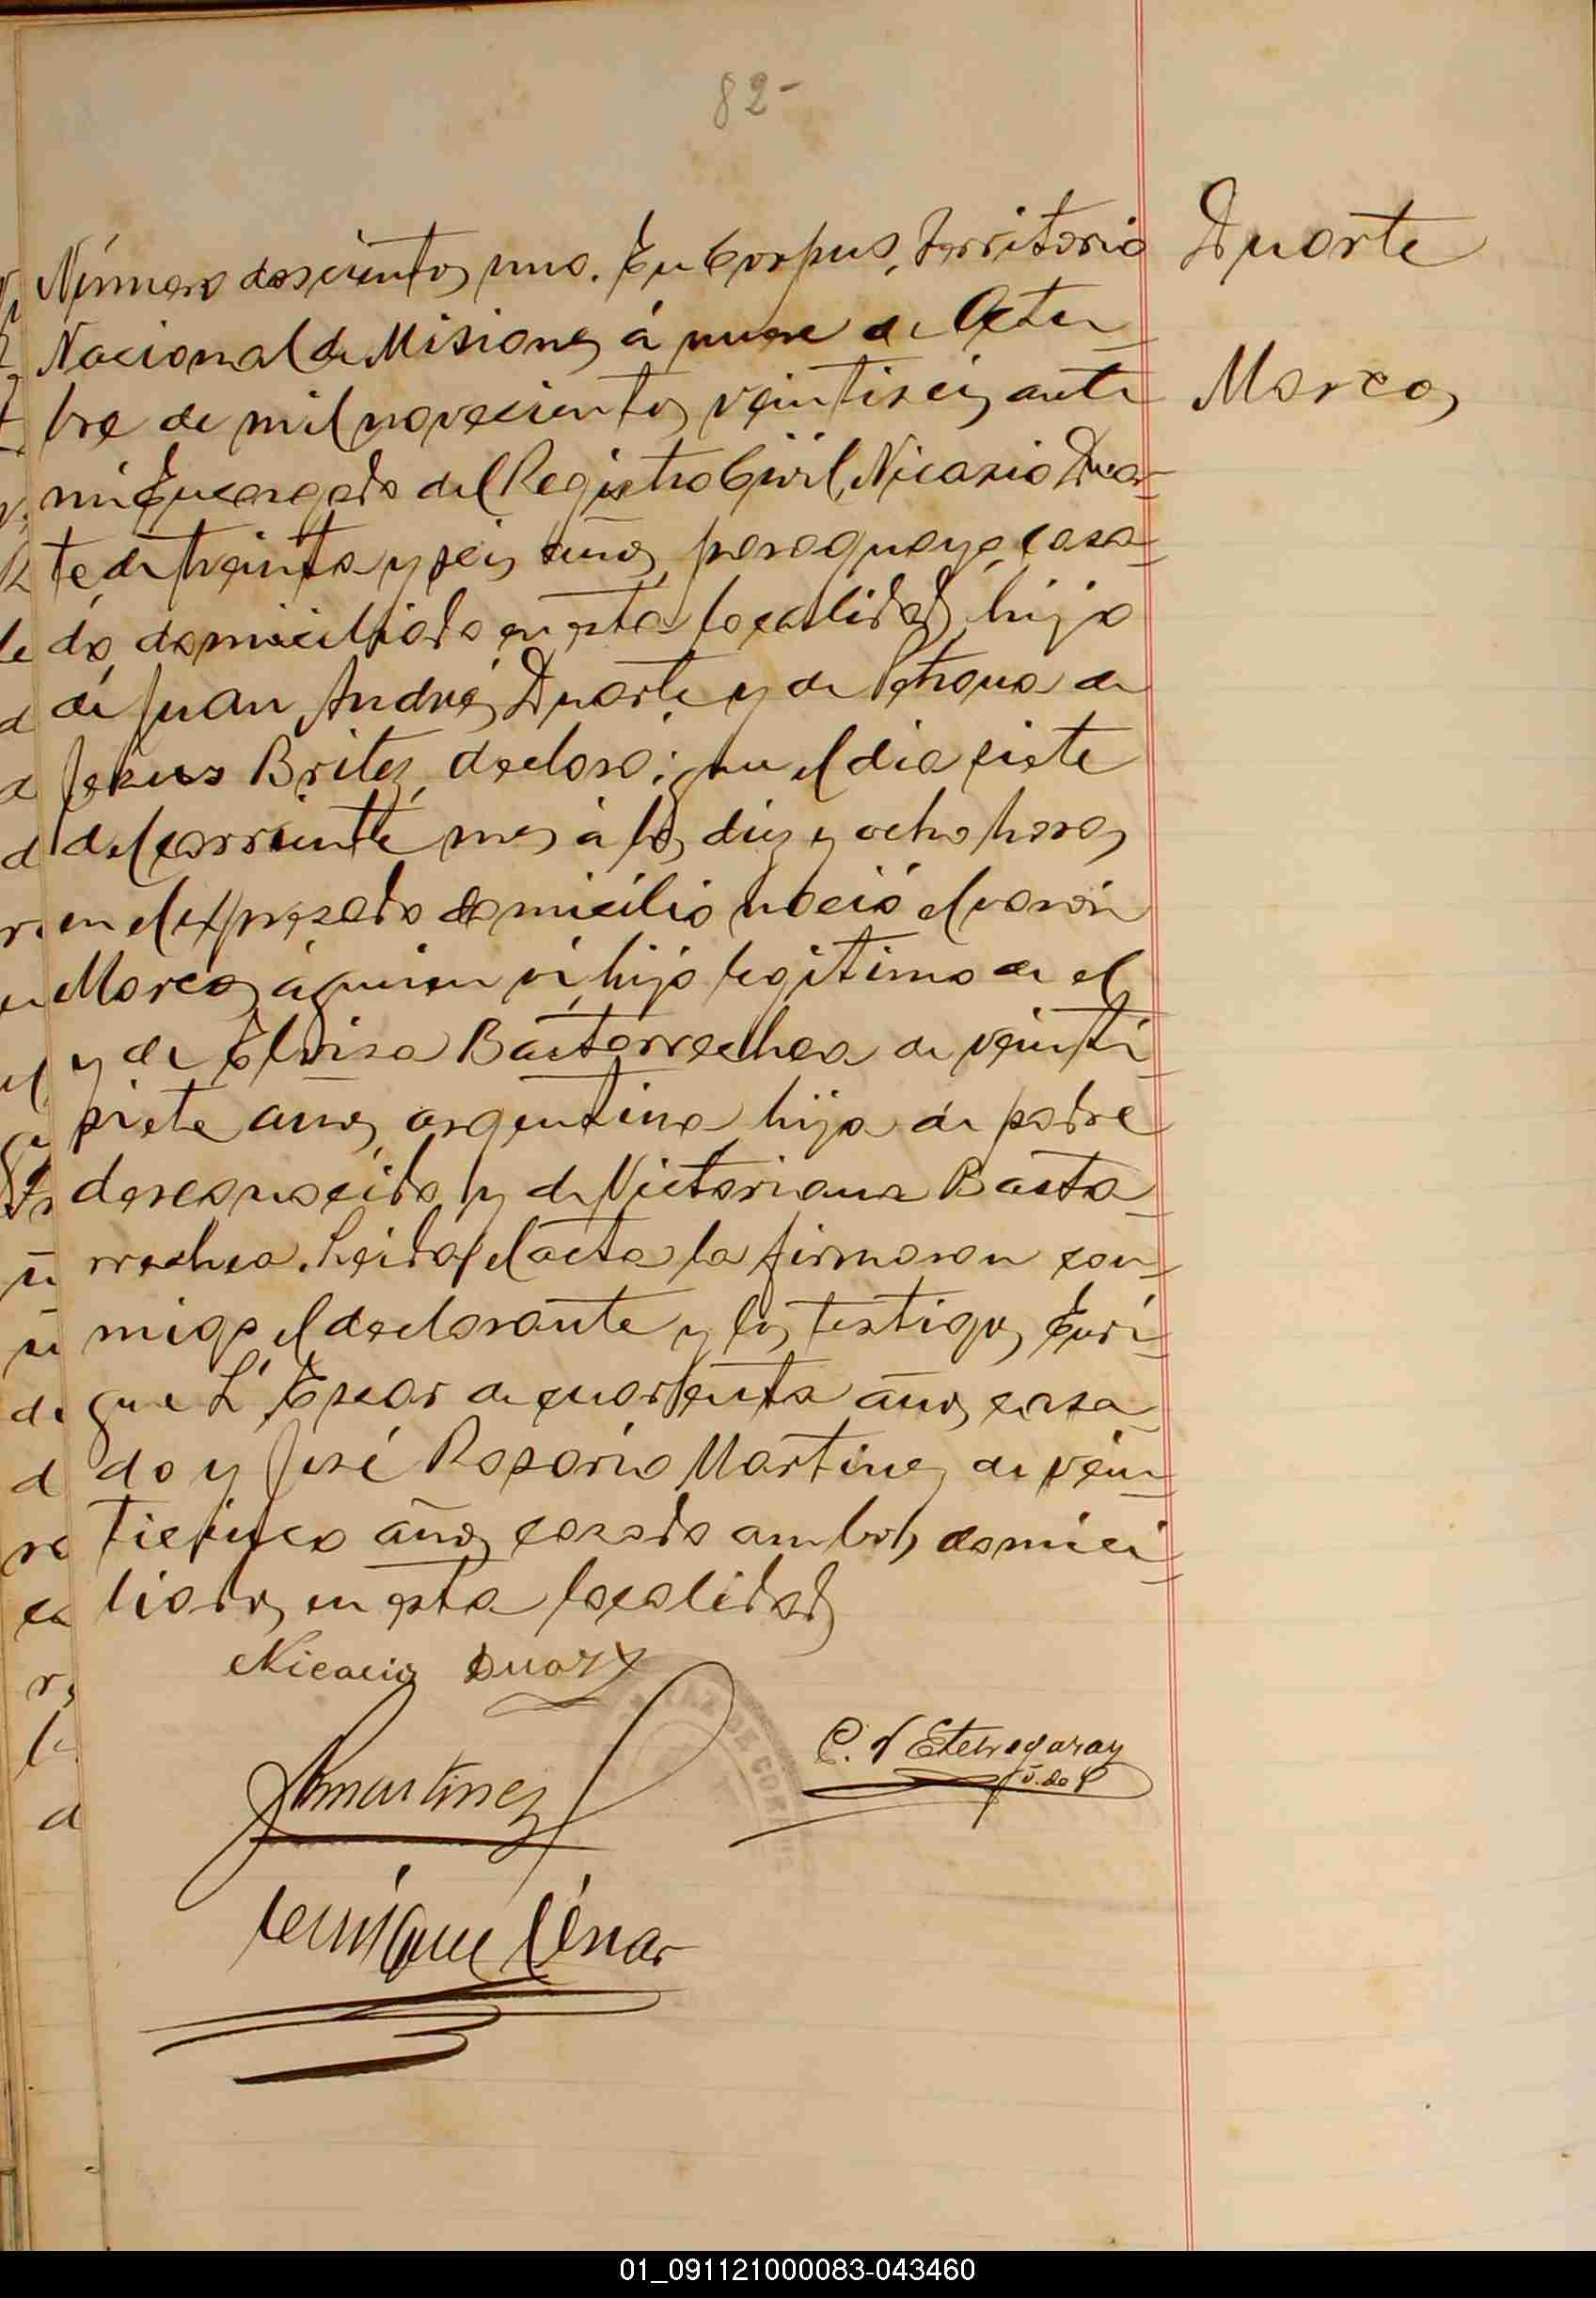 82-
Duarte
Marcos
Número doscientos uno. En Corpus, Territorio
Nacional de Misiones á nueve de Octu-
bre de mil novecientos veintiseis ante
mi Encargado del Registro Civil, Nicasio Duar-
te, de treinta y seis años, paraguayo, casa-
do, domiciliado en esta localidad, hijo
de Juan Andrés Duarte y de Petrona de
Jesus Britez, declaró: que el dia siete
del corriente mes á las diez y ocho horas
en el expresado domicilio nació el varón
Marcos, á quien vi, hijo legitimo de el
y de Eloisa Bastarrechea de veinti-
siete años, argentina hija de padre
desconocido y de Victoriana Basta-
rrechea. Leida el acta la firmaron con-
migo el declarante y los testigos Enri-
que L'Escar de cuarenta años, casa-
do y José Rosario Martinez de vein-
ticinco años casado ambos domici-
liados en esta localidad
Nicacio Duarte
C. Etchegaray
Martinez
Enrique
01_091121000083-043460